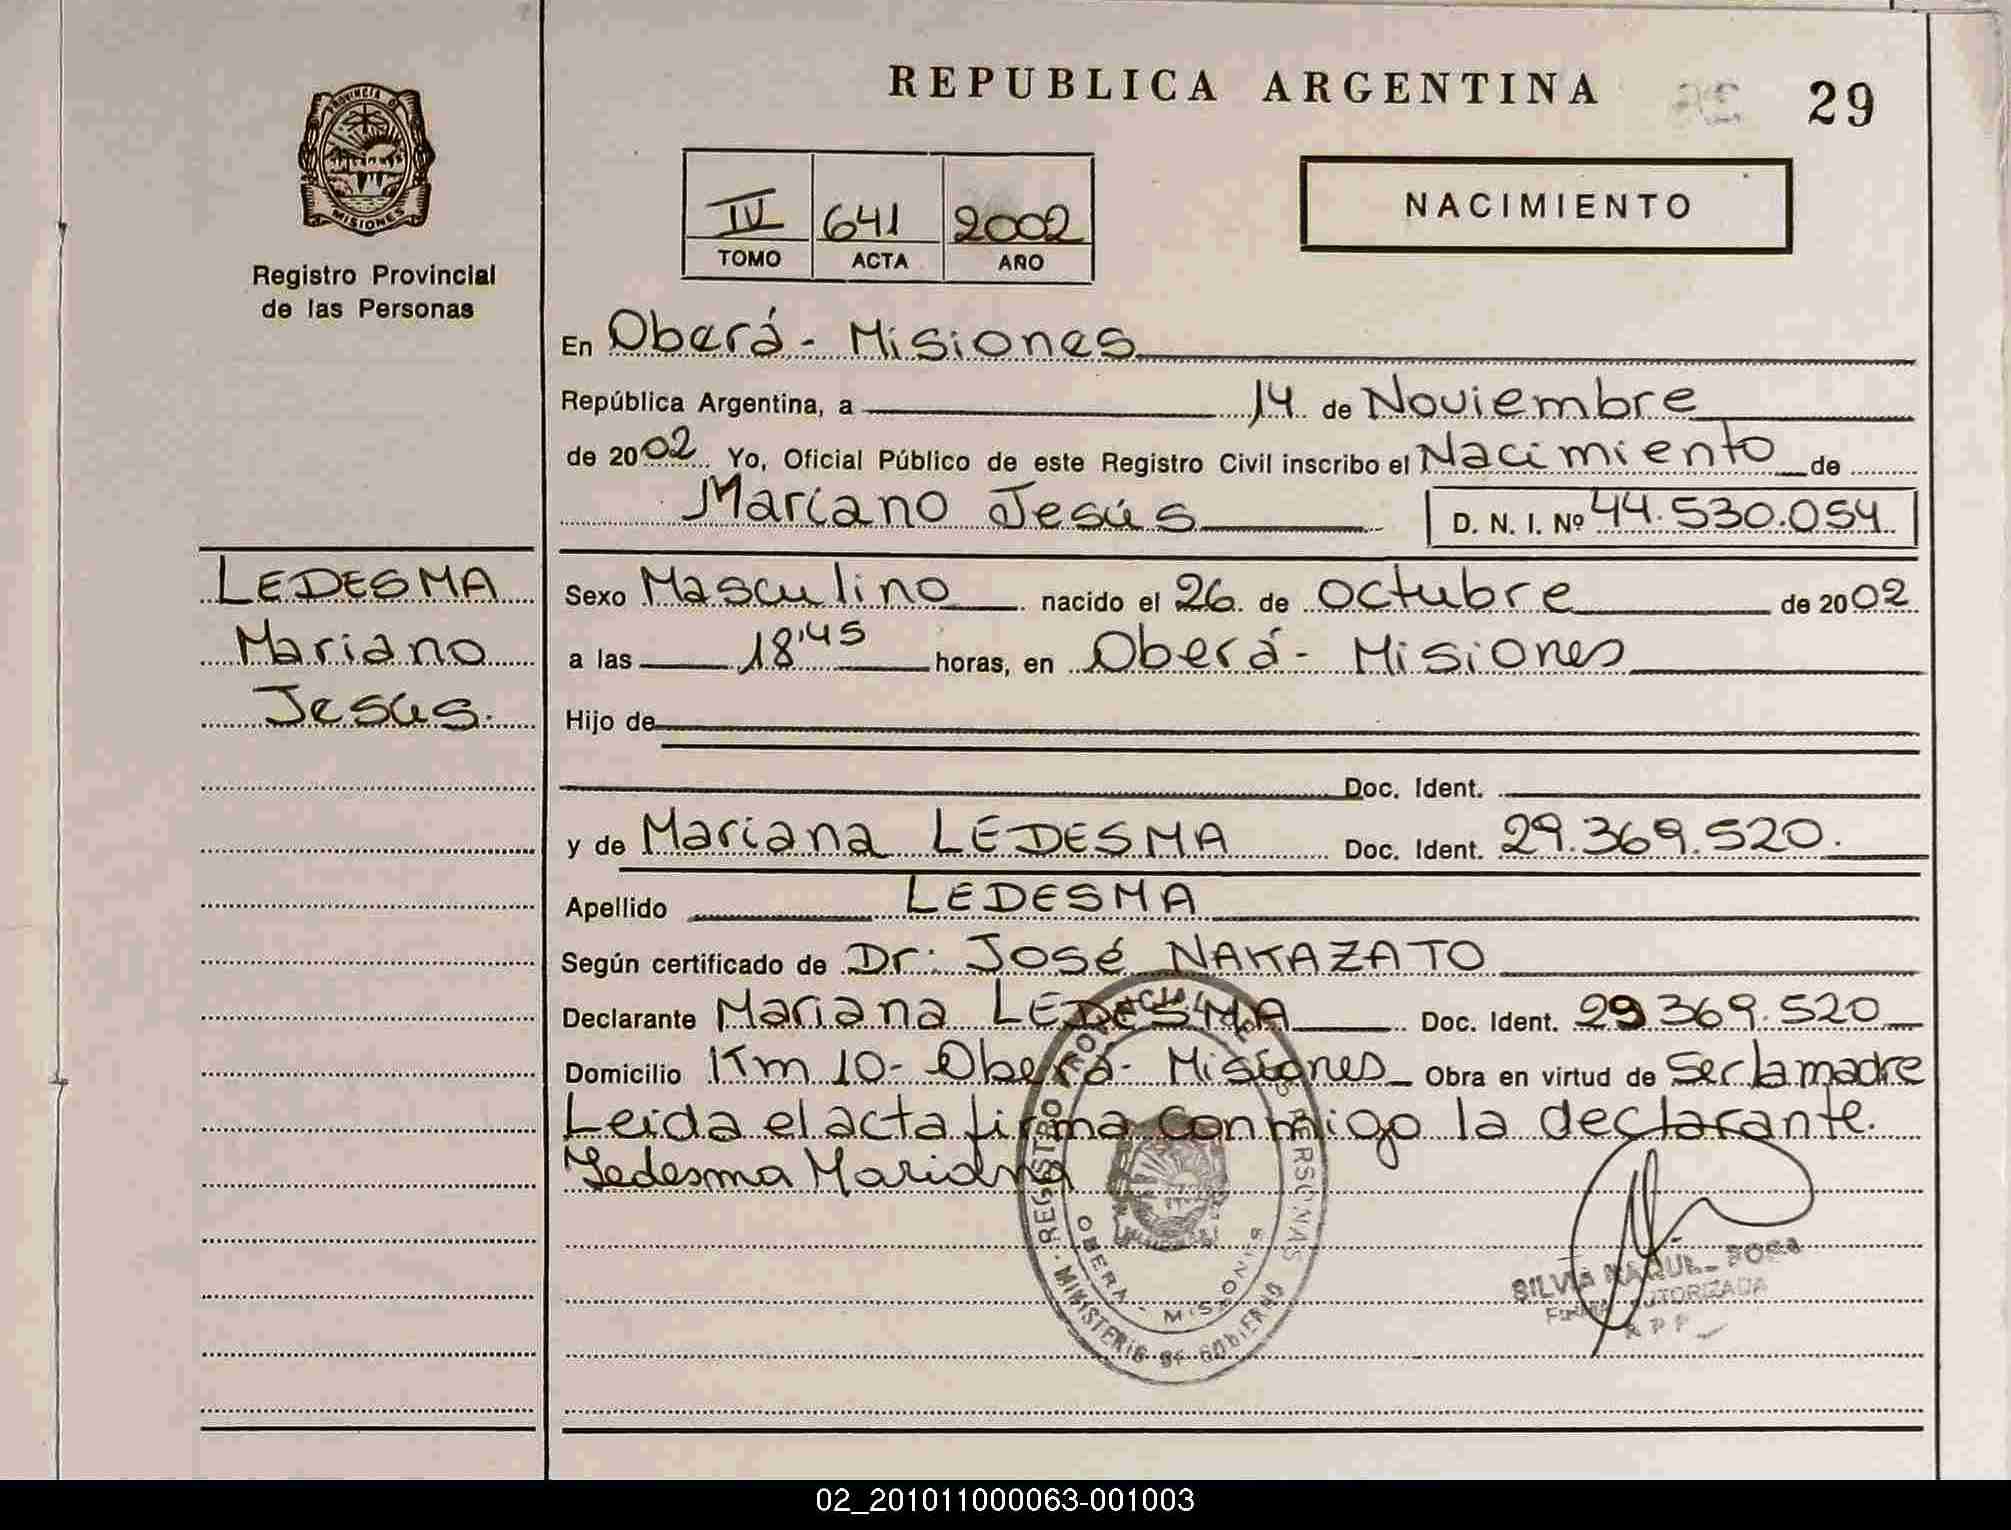 REPUBLICA ARGENTINA
29
PROVINCIA DE
MISIONES
Registro Provincial
de las Personas
IV 641 2002
TOMO ACTA AÑO
NACIMIENTO
En Oberá - Misiones
República Argentina, a 14 de Noviembre
de 2002 Yo, Oficial Público de este Registro Civil inscribo el Nacimiento de
Mariano Jesús D. N. I. Nº 44.530.054
LEDESMA
Mariano
Jesús.
Sexo Masculino nacido el 26 de Octubre de 2002
a las 18'45 horas, en Oberá - Misiones
Hijo de
Doc. Ident.
y de Mariana LEDESMA Doc. Ident. 29.369.520.
Apellido LEDESMA
Según certificado de Dr. José NAKAZATO
Declarante Mariana LEDESMA Doc. Ident. 29369.520
Domicilio Km 10 - Oberá - Misiones Obra en virtud de Ser la madre
Leida el acta firma conmigo la declarante.
Ledesma Mariana
REGISTRO PROVINCIAL DE LAS PERSONAS
OBERA - MISIONES
MINISTERIO DE GOBIERNO
SILVIA RAQUEL
FIRMA AUTORIZADA
R P P
02_201011000063-001003